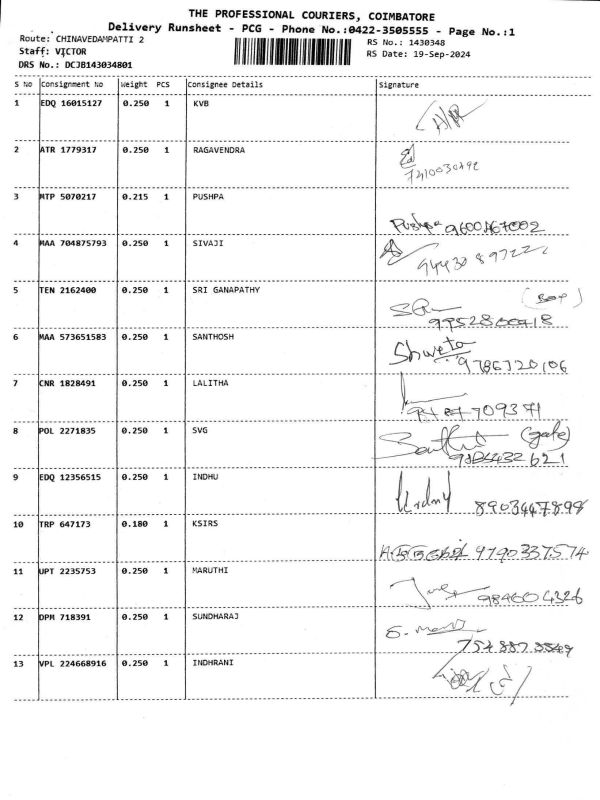 THE PROFESSIONAL COURIERS, COIMBATORE
Delivery Runsheet - PCG - Phone No.:0422-3505555 - Page No.:1
Route: CHINAVEDAMPATTI 2
RS No.: 1430348
Staff: VICTOR
RS Date: 19-Sep-2024
DRS No.: DCJB143034801
S No Consignment No Weight PCS Consignee Details Signature
1 EDQ 16015127 0.250 1 KVB
2 ATR 1779317 0.250 1 RAGAVENDRA
3 MTP 5070217 0.215 1 PUSHPA
Pushpa
4 MAA 704875793 0.250 1 SIVAJI
5 TEN 2162400 0.250 1 SRI GANAPATHY
6 MAA 573651583 0.250 1 SANTHOSH
Shweta
9786720106
7 CNR 1828491 0.250 1 LALITHA
8 POL 2271835 0.250 1 SVG
(gate)
9 EDQ 12356515 0.250 1 INDHU
8903447898
10 TRP 647173 0.180 1 KSIRS
9790337574
11 UPT 2235753 0.250 1 MARUTHI
9846004326
12 DPM 718391 0.250 1 SUNDHARAJ
13 VPL 224668916 0.250 1 INDHRANI